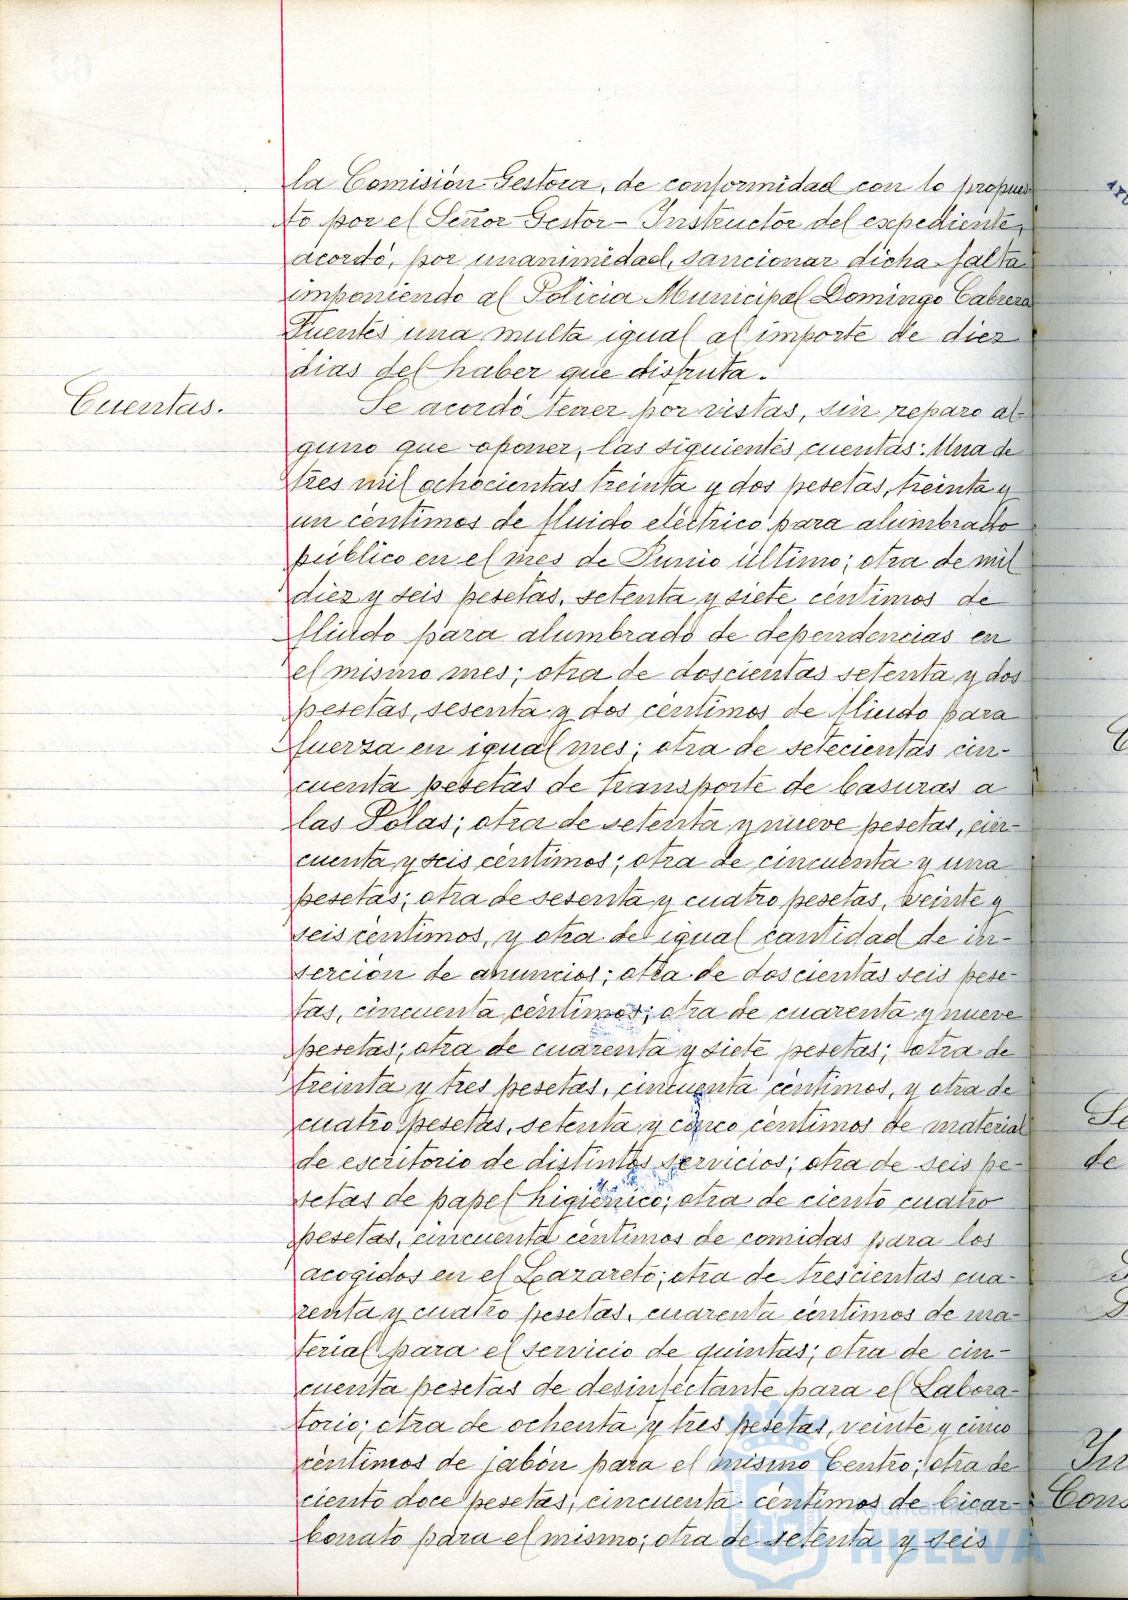 la Comisión Gestora, de conformidad con lo propues-
to por el Señor Gestor-Instructor del expediente,
acordó, por unanimidad, sancionar dicha falta
imponiendo al Policia Municipal Domingo Cabrera
Fuentes una multa igual al importe de diez
dias del haber que disfruta.
Cuentas.
Se acordó tener por vistas, sin reparo al-
guno que oponer, las siguientes cuentas: Una de
tres mil ochocientas treinta y dos pesetas, treinta y
un céntimos de fluido eléctrico para alumbrado
público en el mes de Junio último; otra de mil
diez y seis pesetas, setenta y siete céntimos de
fluido para alumbrado de dependencias en
el mismo mes; otra de doscientas setenta y dos
pesetas, sesenta y dos céntimos de fluido para
fuerza en igual mes; otra de setecientas cin-
cuenta pesetas de transporte de basuras a
las Polas; otra de setenta y nueve pesetas, cin-
cuenta y seis céntimos; otra de cincuenta y una
pesetas; otra de sesenta y cuatro pesetas, veinte y
seis céntimos, y otra de igual cantidad de in-
serción de anuncios; otra de doscientas seis pese-
tas, cincuenta céntimos; otra de cuarenta y nueve
pesetas; otra de cuarenta y siete pesetas; otra de
treinta y tres pesetas, cincuenta céntimos, y otra de
cuatro pesetas, setenta y cinco céntimos de material
de escritorio de distintos servicios; otra de seis pe-
setas de papel higiénico; otra de ciento cuatro
pesetas, cincuenta céntimos de comidas para los
acogidos en el Lazareto; otra de trescientas cua-
renta y cuatro pesetas, cuarenta céntimos de ma-
terial para el servicio de quintas; otra de cin-
cuenta pesetas de desinfectante para el Labora-
torio; otra de ochenta y tres pesetas, veinte y cinco
céntimos de jabón para el mismo Centro; otra de
ciento doce pesetas, cincuenta céntimos de bicar-
bonato para el mismo; otra de setenta y seis
Se
de
In
Cons
Ayuntamiento de
HUELVA